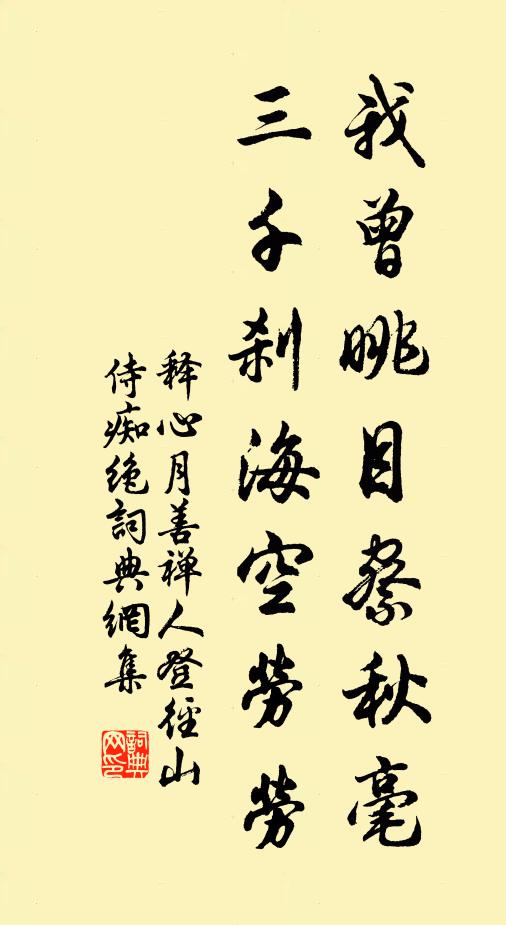 我曾眺目察秋毫
三千刹海空劳劳
释心月善禅人登径山
侍痴绝词典网集
詞典
网印